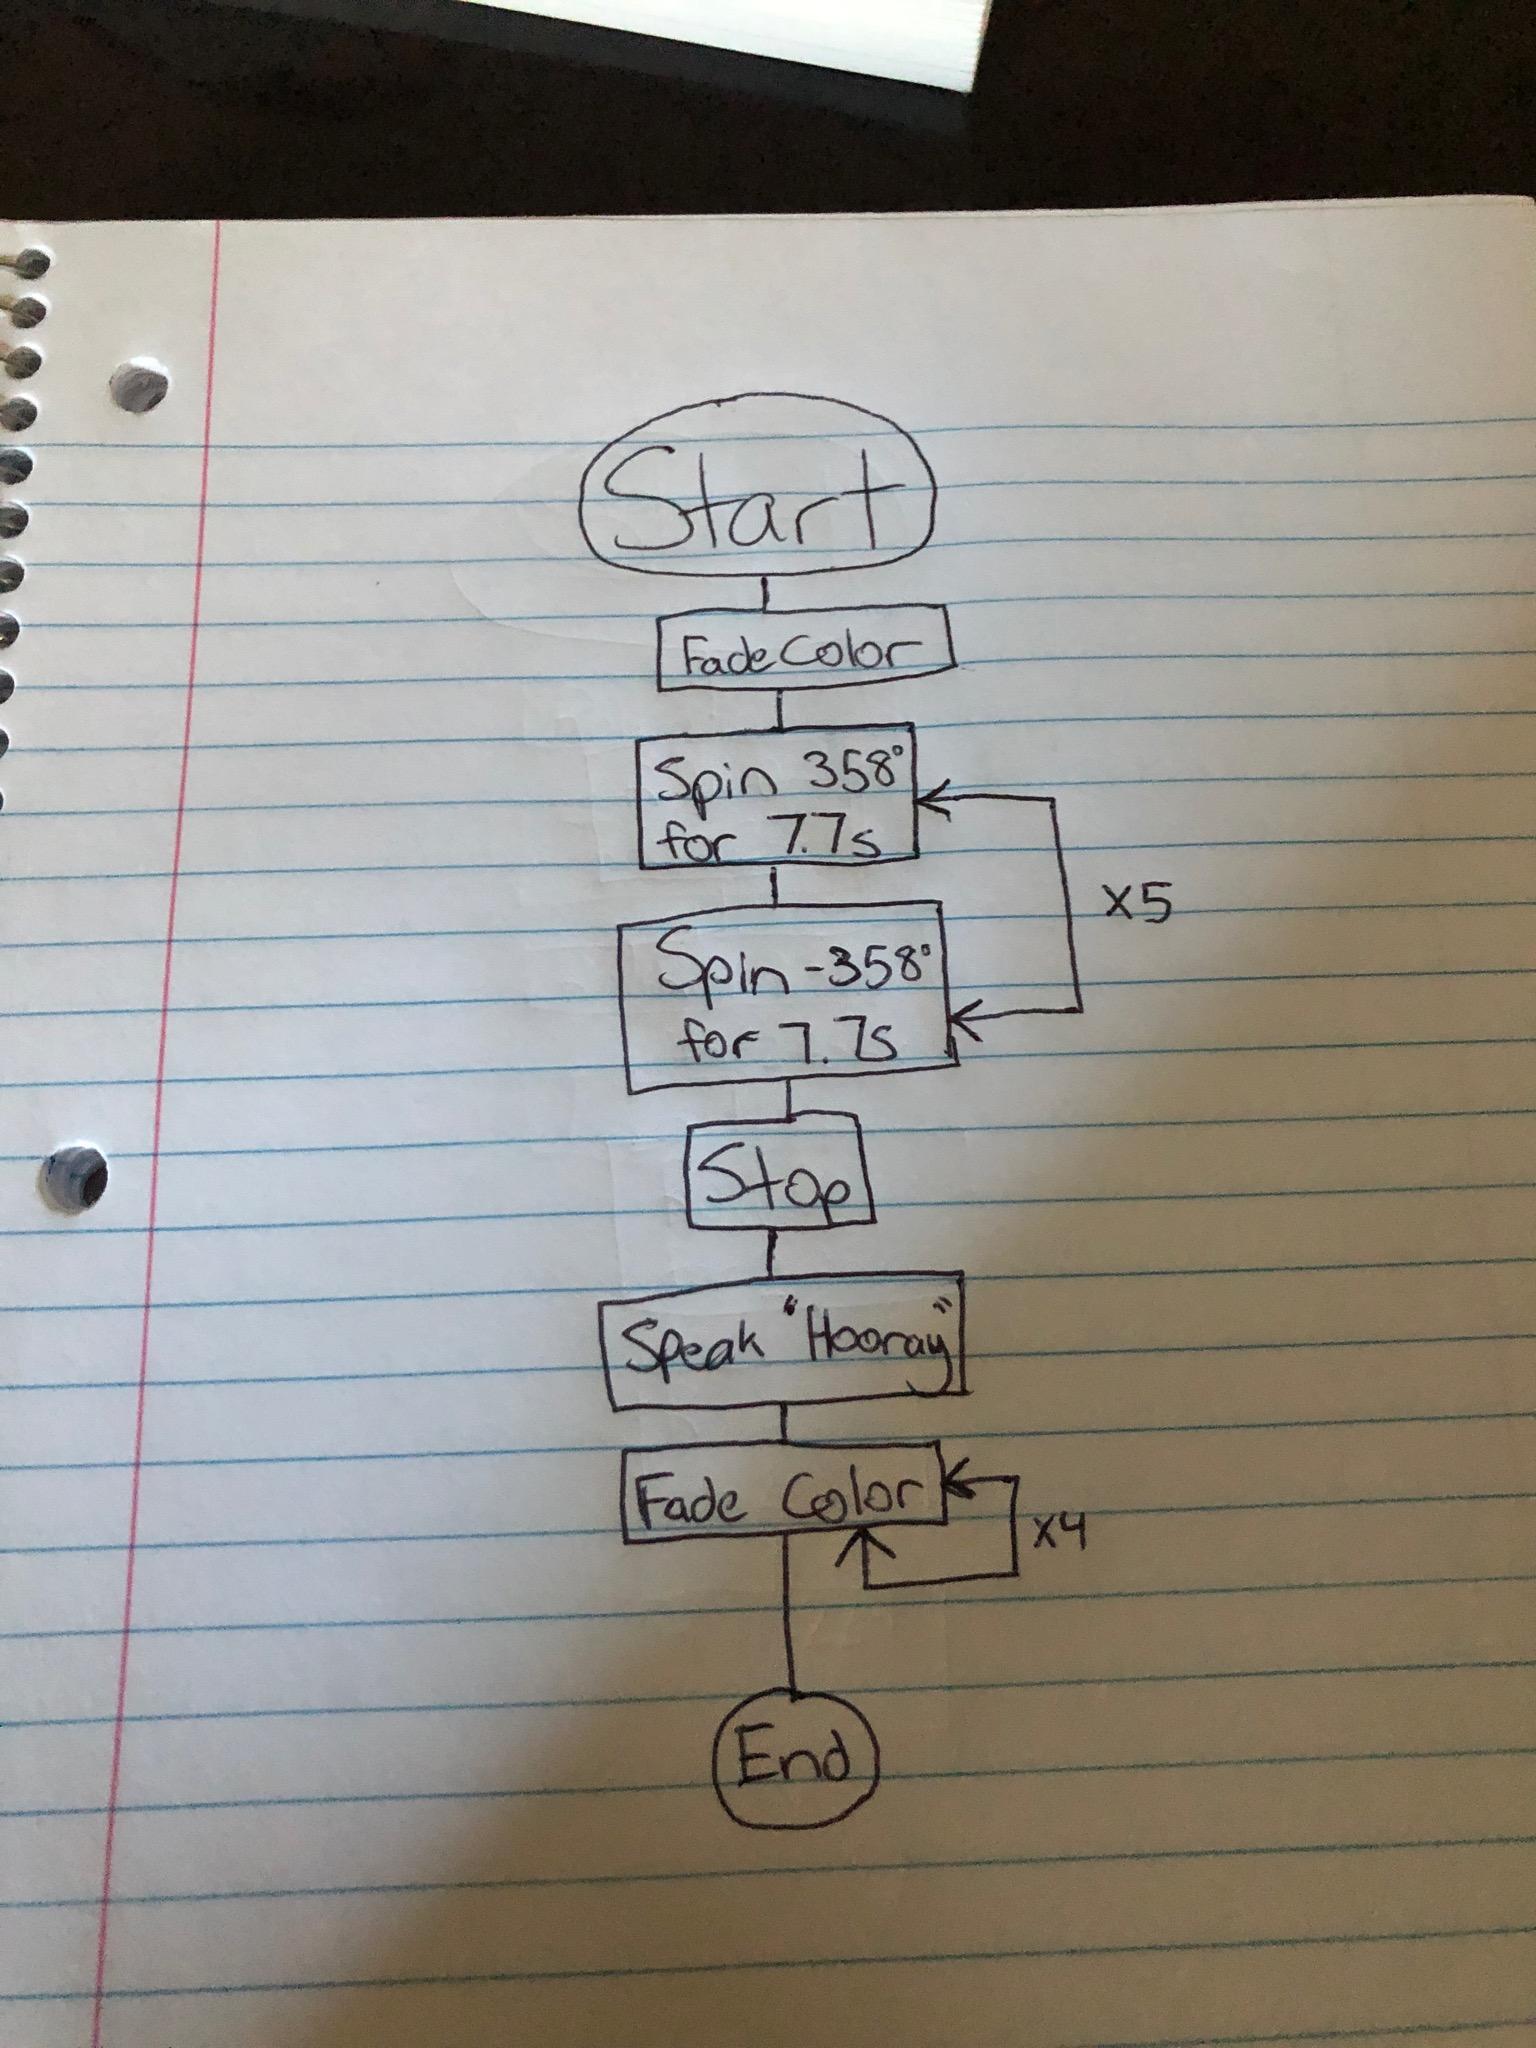 Start
Fade Color
Spin 358°
for 7.7s
x5
Spin -358°
for 7.7s
Stop
Speak "Hooray"
Fade Color
x4
End